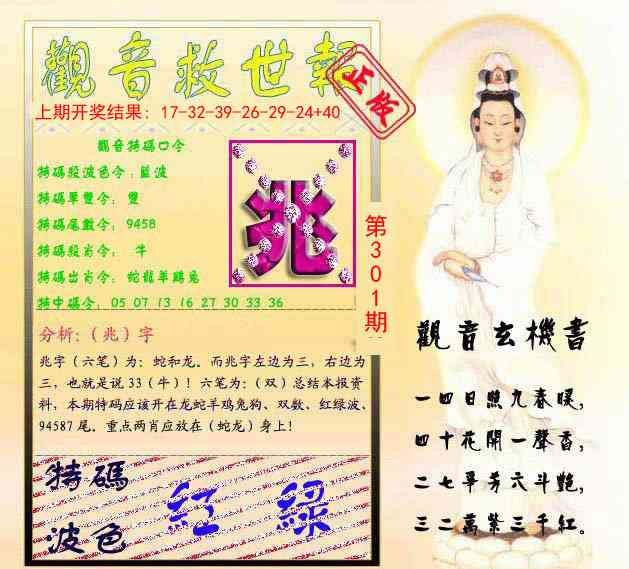 觀音救世報
正版
上期开奖结果：17-32-39-26-29-24+40
觀音特碼口令
特碼殺波色令：藍波
特碼單雙令： 雙
特碼尾數令： 9458
特碼殺肖令： 牛
特碼出肖令： 蛇龍羊鷄兔
特中碼令： 05 07 13 16 27 30 33 36
兆
第301期
分析：（兆）字
兆字（六笔）为：蛇和龙。而兆字左边为三，右边为
三，也就是说 33（牛）！六笔为：（双）总结本报资
料，本期特码应该开在龙蛇羊鸡兔狗、双数、红绿波、
94587 尾。重点两肖应放在（蛇龙）身上！
特碼
波色
紅 綠
觀音玄機書
一四日照九春暖，
四十花開一聲香，
二七爭芳六斗艷，
三二萬紫三千紅。